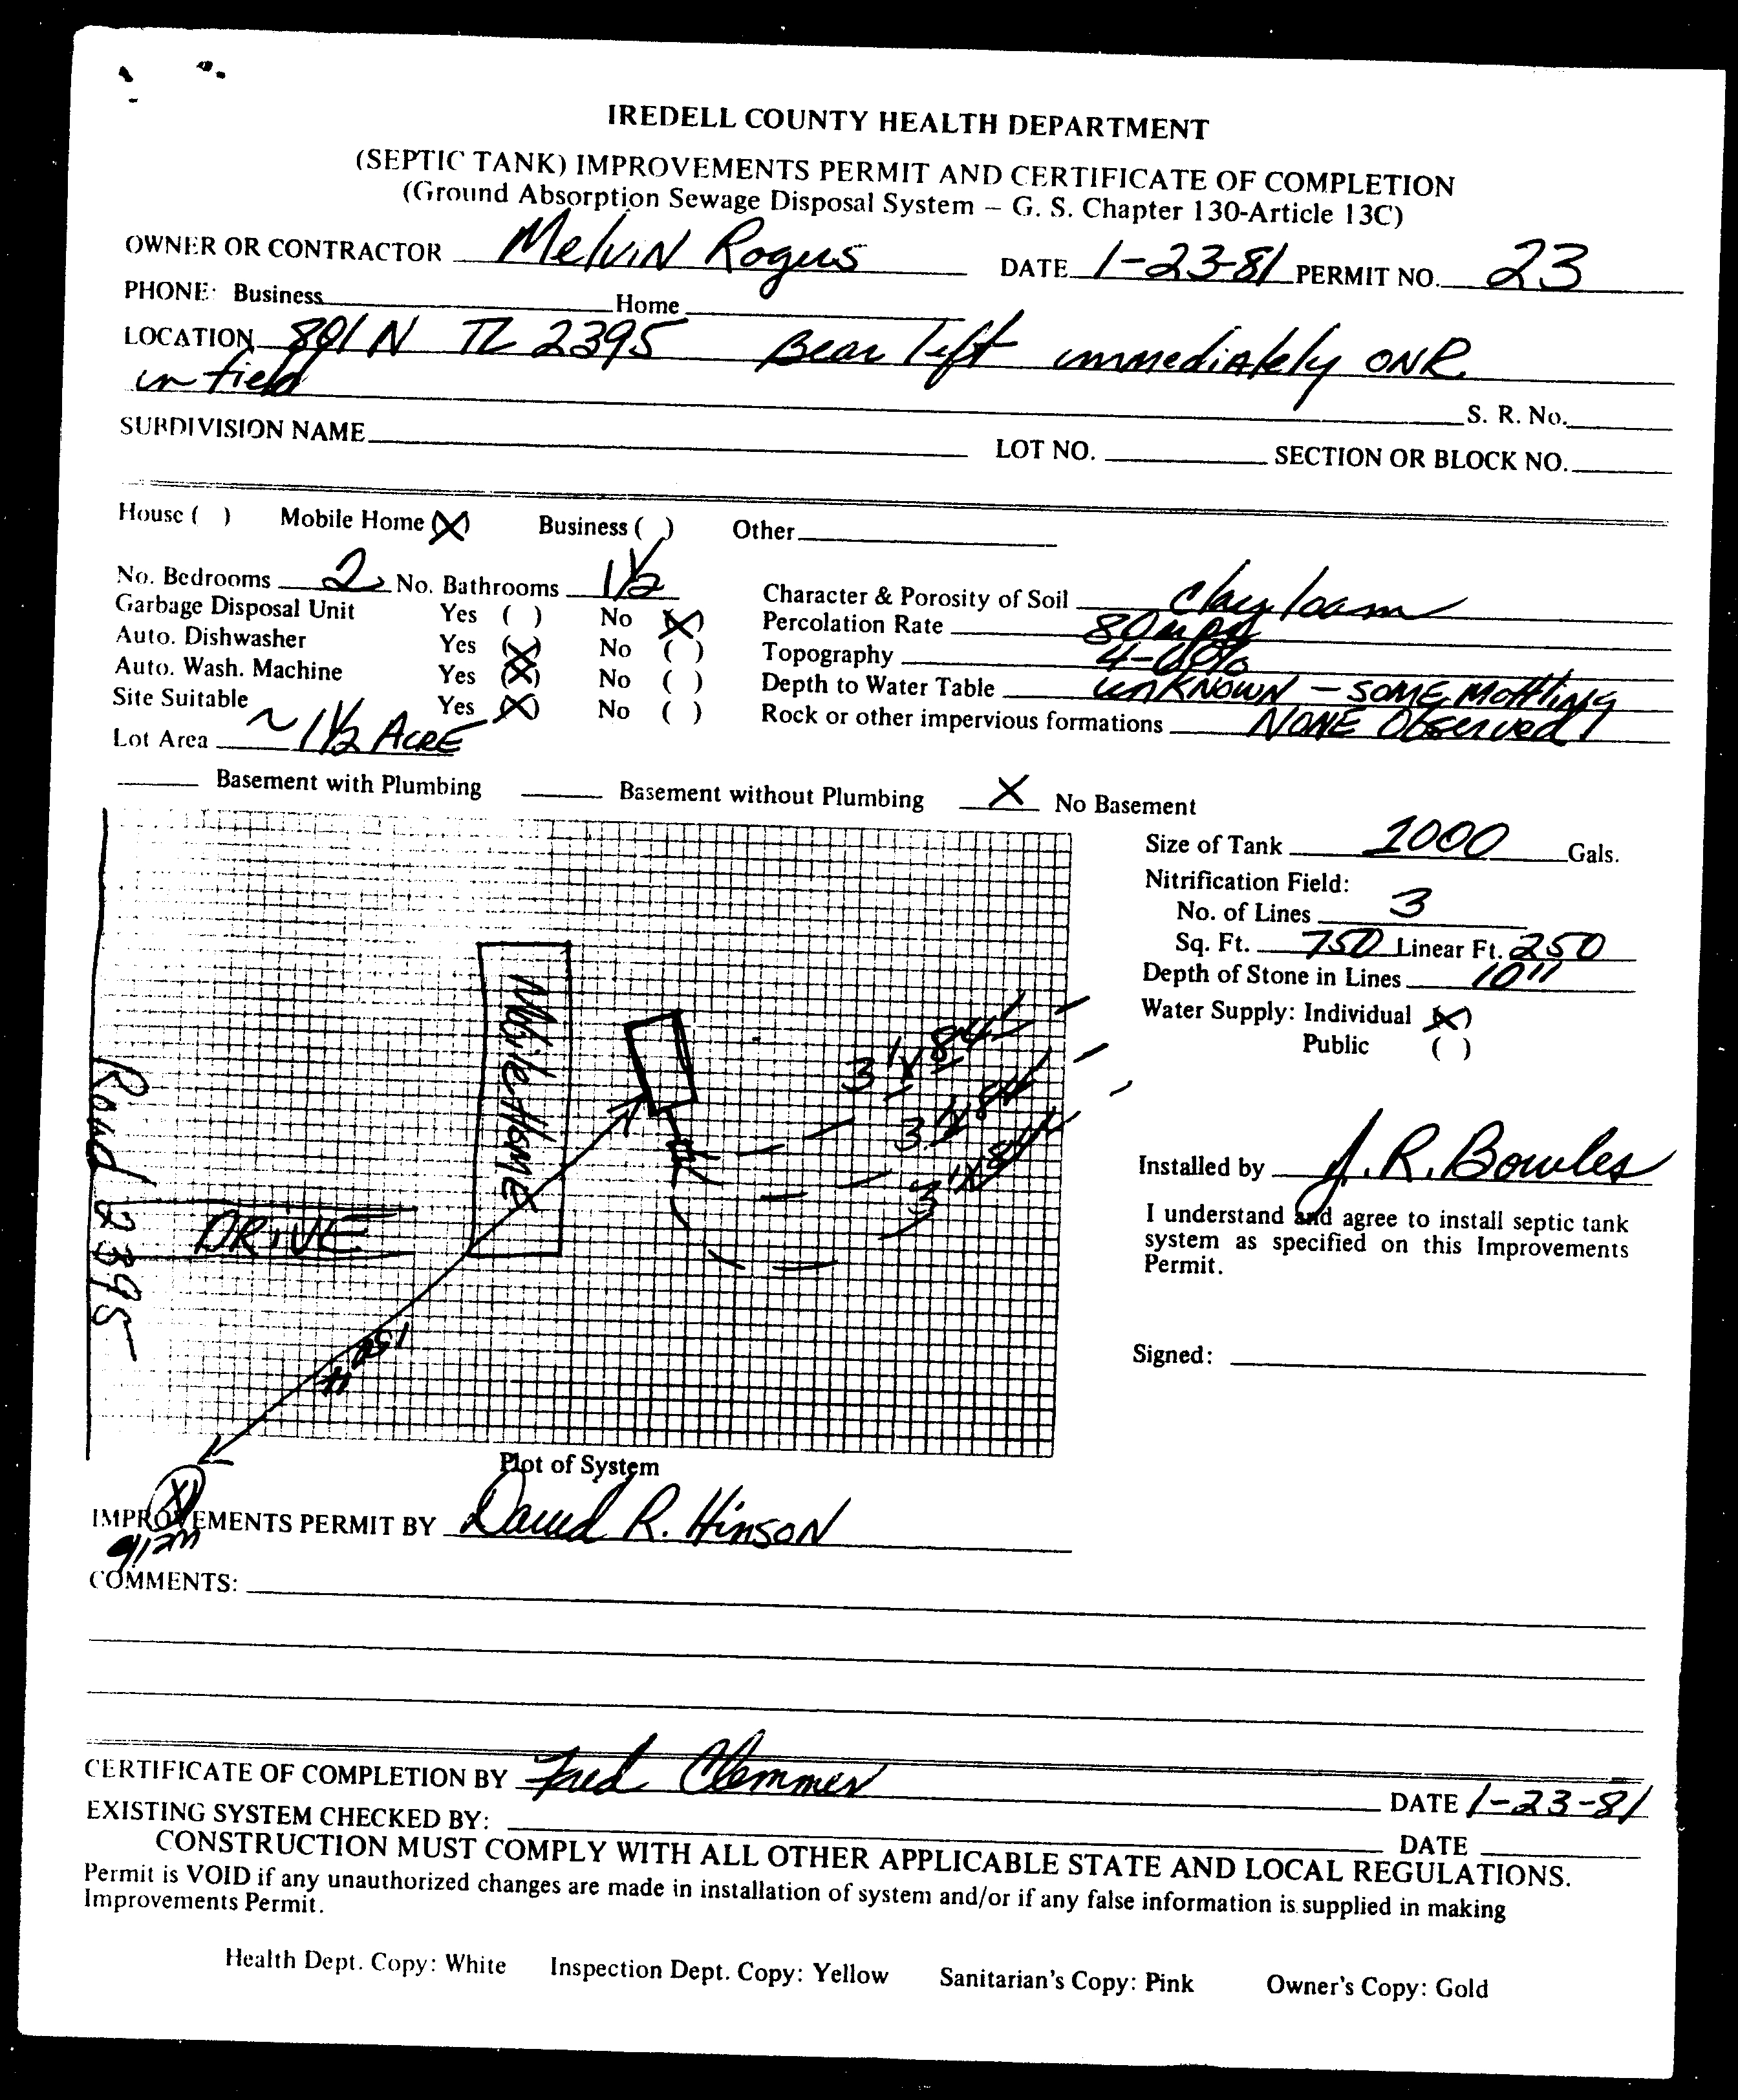 IREDELL COUNTY HEALTH DEPARTMENT
(SEPTIC TANK) IMPROVEMENTS PERMIT AND CERTIFICATE OF COMPLETION
(Ground Absorption Sewage Disposal System – G. S. Chapter 130-Article 13C)
OWNER OR CONTRACTOR Melvin Rogers DATE 1-23-81 PERMIT NO. 23
PHONE: Business Home
LOCATION 801 N TL 2395 Bear left immediately ON R
in field
S. R. No.
SUBDIVISION NAME LOT NO. SECTION OR BLOCK NO.
House ( ) Mobile Home (X) Business ( ) Other
No. Bedrooms 2 No. Bathrooms 1 1/2
Character & Porosity of Soil clay loam
Garbage Disposal Unit Yes ( ) No (X)
Percolation Rate 80
Auto. Dishwasher Yes (X) No ( )
Topography 4-6%
Auto. Wash. Machine Yes (X) No ( )
Depth to Water Table unKNOWN – SOME Mottling
Site Suitable Yes (X) No ( )
Rock or other impervious formations NONE Observed
Lot Area ~ 1 1/2 ACRE
Basement with Plumbing Basement without Plumbing X No Basement
Size of Tank 1000 Gals.
Nitrification Field:
No. of Lines 3
Sq. Ft. 750 Linear Ft. 250
Depth of Stone in Lines 10"
Water Supply: Individual (X)
Public ( )
Mobile Home
3' x 84'
3' x 84'
3' x 84'
Road 2395
DRIVE
150 ft
Installed by J. R. Bowles
I understand and agree to install septic tank
system as specified on this Improvements
Permit.
Signed:
Plot of System
IMPROVEMENTS PERMIT BY David R. Hinson
COMMENTS:
CERTIFICATE OF COMPLETION BY Fred Clemmer DATE 1-23-81
EXISTING SYSTEM CHECKED BY: DATE
CONSTRUCTION MUST COMPLY WITH ALL OTHER APPLICABLE STATE AND LOCAL REGULATIONS.
Permit is VOID if any unauthorized changes are made in installation of system and/or if any false information is supplied in making
Improvements Permit.
Health Dept. Copy: White Inspection Dept. Copy: Yellow Sanitarian's Copy: Pink Owner's Copy: Gold